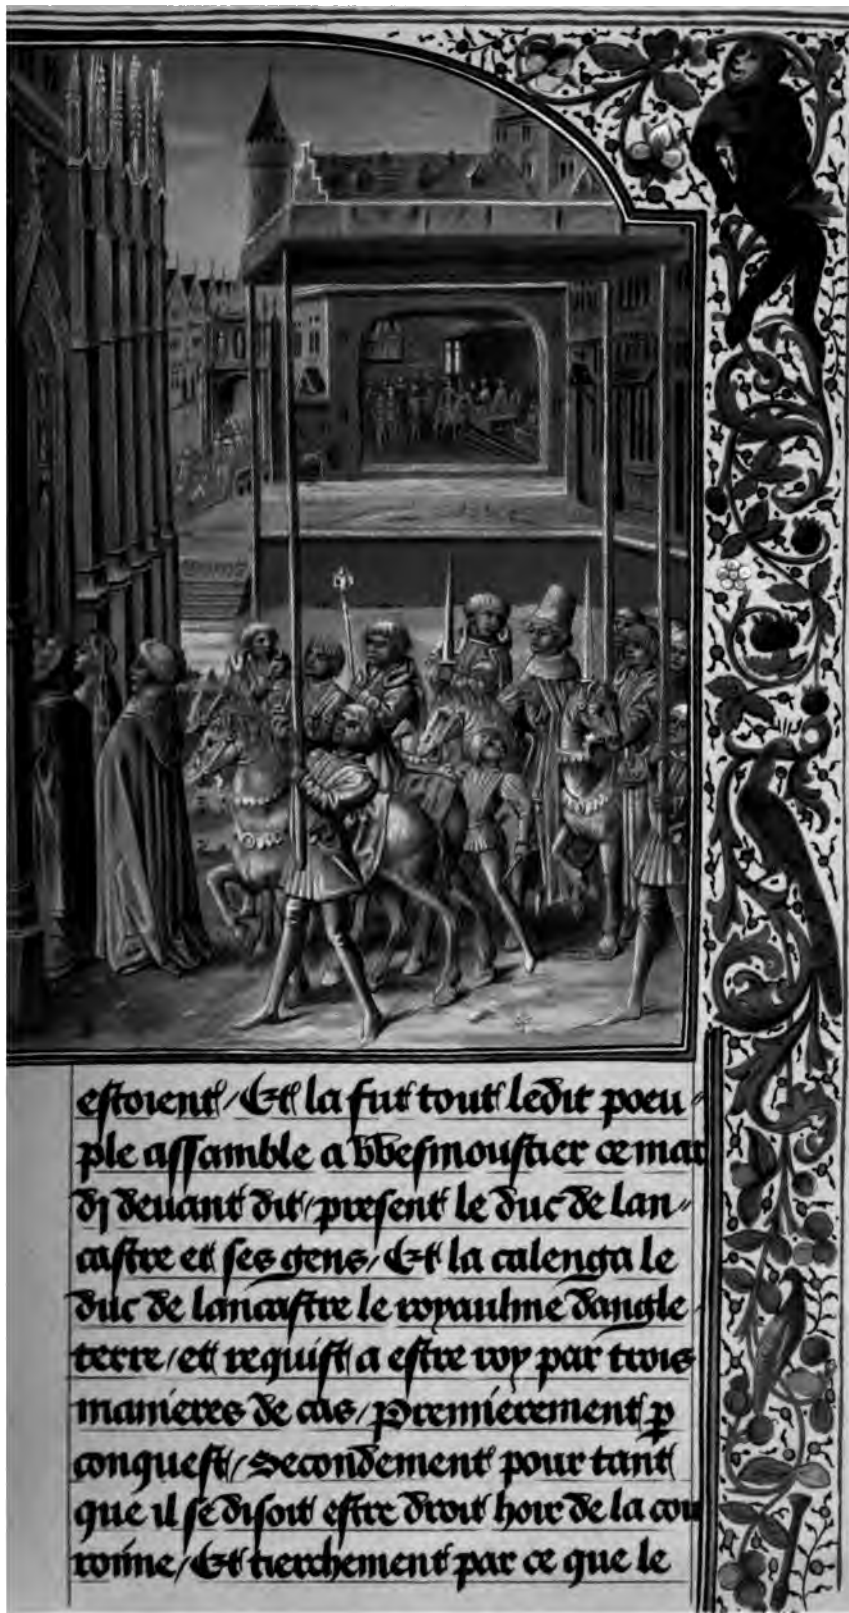 estoient / Et la fut tout ledit poeu〃
ple assamble a wesmoustier ce mar
di deuant dit / present le duc de lan〃
castre et ses gens / Et la calenga le
duc de lancastre le royaulme dangle
terre / et requist a estre roy par trois
manieres de cas / Premierement ꝑ
conquest / Secondement pour tant
que il se disoit estre droit hoir de la cou
ronne / Et tierchement par ce que le